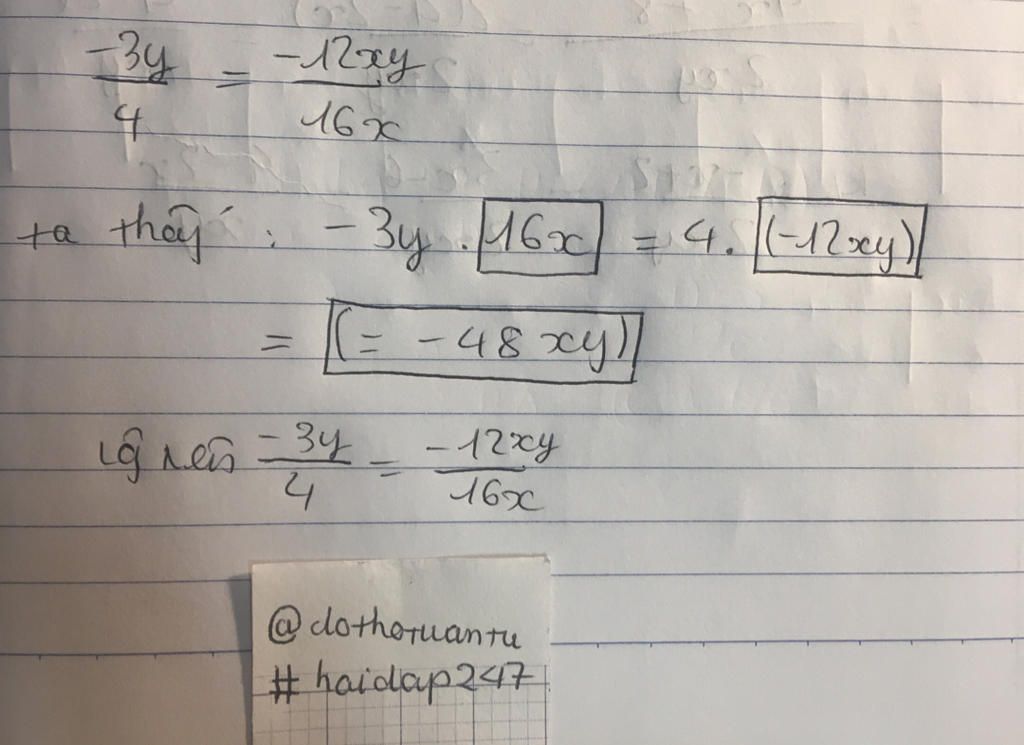 -3y/4 = -12xy/16x
ta thấy : -3y . 16x = 4. (-12xy)
= (= -48xy)
-3y/4 = -12xy/16x
@dothotuantu
#haidap247